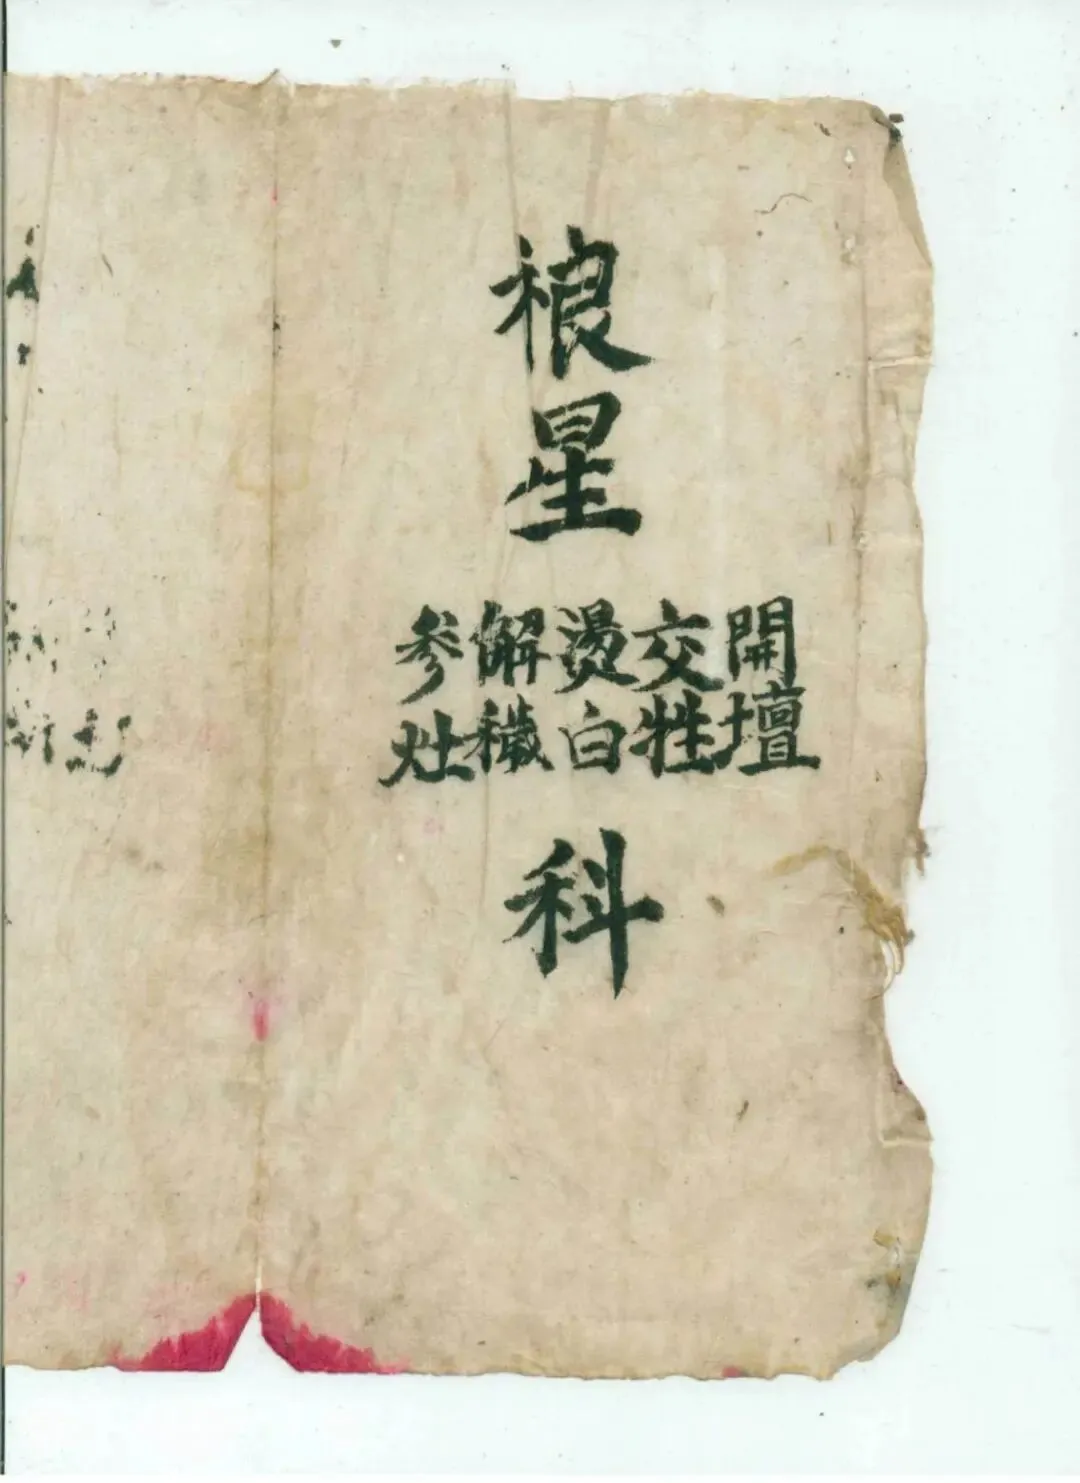 䄾星
開壇
交牲
燙白
解穢
參灶
科